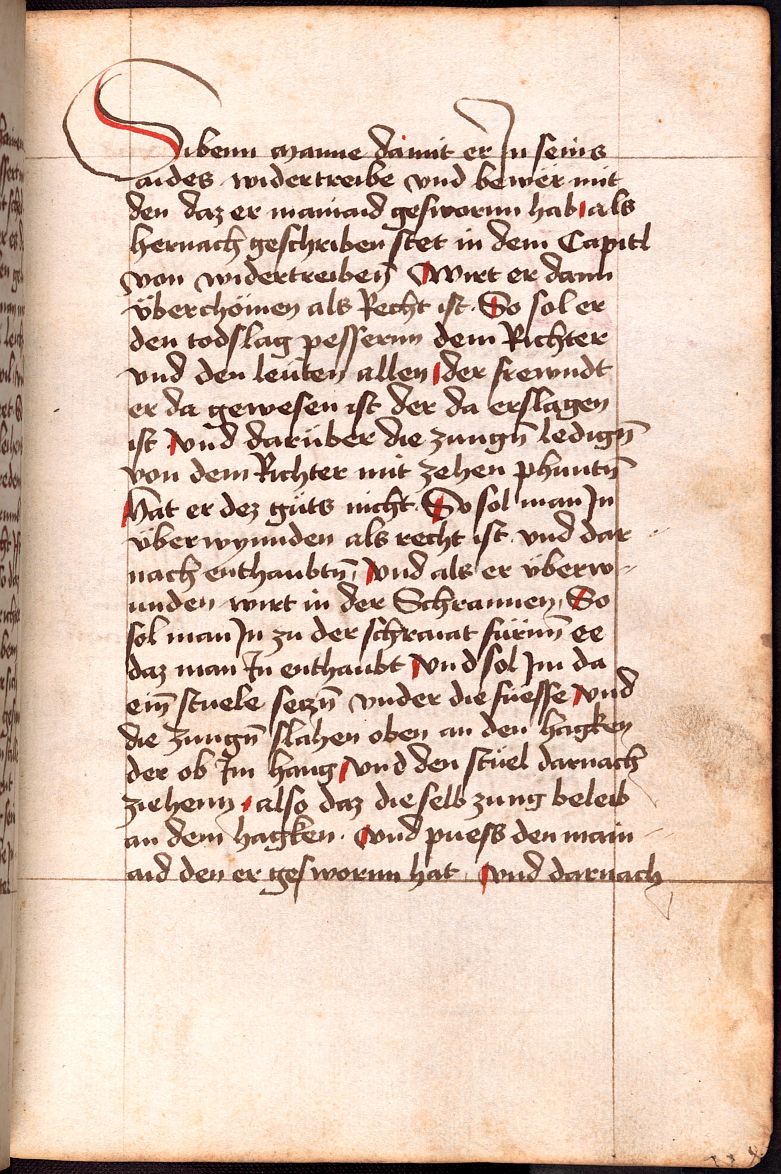 Sibenn manne damit er Jn seins
aides widertreibe vnd bewër mit
den daz er mainaid geswornn hab als
hernach geschriben stet in dem Capitl
von widertreibeñ Wirt er dann
überchömen als Recht ist. So sol er
den todslag pessernn dem Richter
vnd den leüten allen der frewndt
er da gewesen ist der da erslagen
ist vnd darüber die zungñ ledigñ
von dem Richter mit zehen phuntñ
Hat er dez güts nicht. So sol man Jn
überwynnden als recht ist. vnd dar
nach enthaubtñ, vnd als er überw
unden wirt in der Schrannen, So
sol man Jn zu der schranat fürnñ ee
daz man Jn enthaubt vnd sol Jm da
ein̄ stuele seczñ vnder die fuesse vnd
die zungñ slahen oben an den hagken
der ob Jm hang vnd den stüel darnach
ziehenn, also daz die selb zung beleib
an dem hagken. vnd puess den main
aid den er geswornn hat, vnd darnach